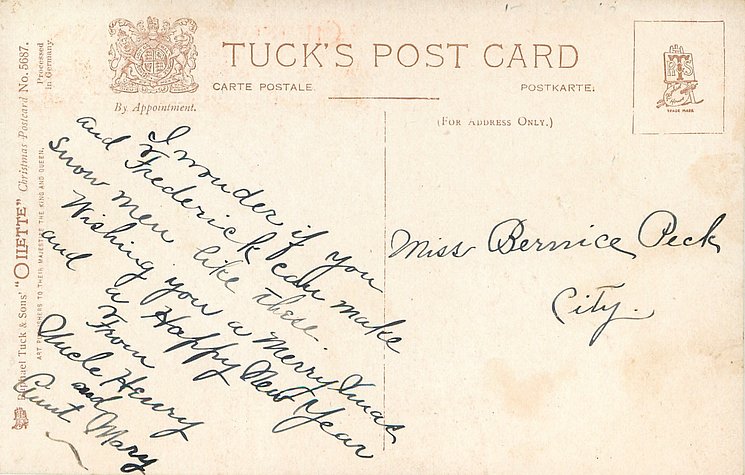 TUCK'S POST CARD
CARTE POSTALE.
POSTKARTE.
By Appointment.
(FOR ADDRESS ONLY.)
TRADE MARK
Raphael Tuck & Sons' "OILETTE" Christmas Postcard No. 5687.
ART PUBLISHERS TO THEIR MAJESTIES THE KING AND QUEEN.
Processed
in Germany.
I wonder if you
and Frederick can make
snow men like these.
Wishing you a Merry Xmas
and a Happy New Year
From
Uncle Henry
and
Aunt Mary
Miss Bernice Peck
City.